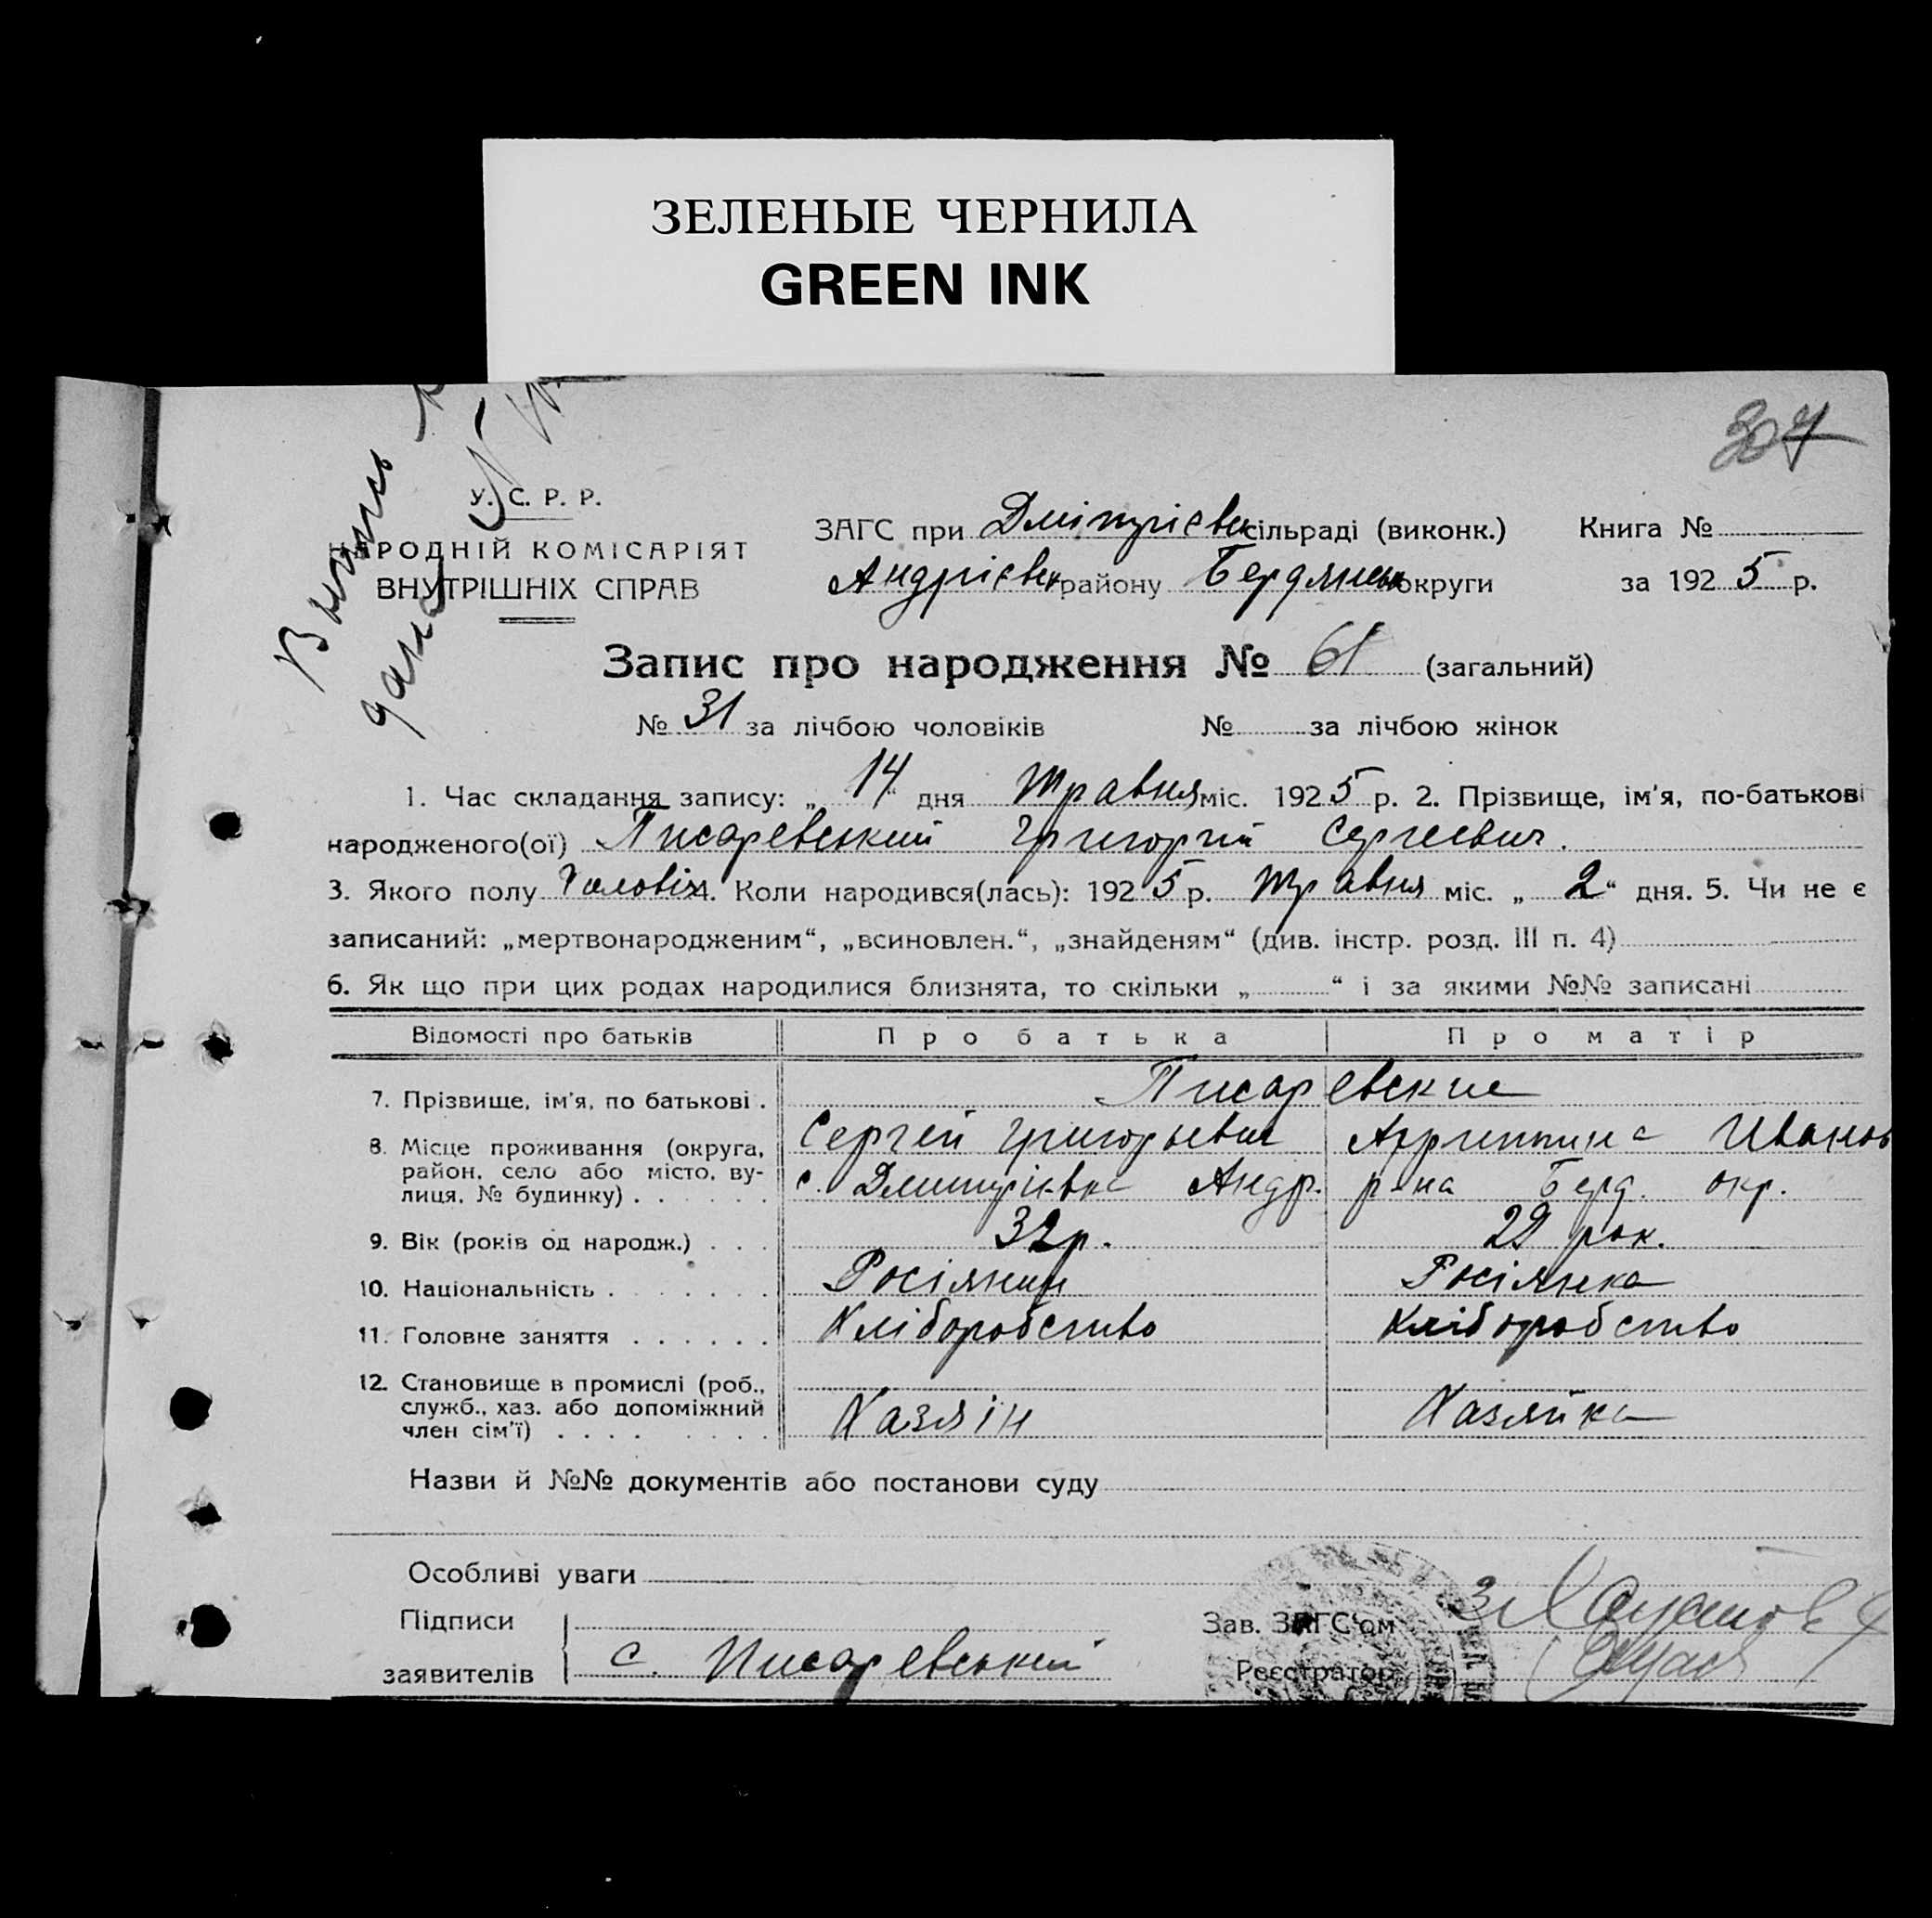 ЗЕЛЕНЫЕ ЧЕРНИЛА
GREEN INK
307
Выпись
дана
У. С. Р. Р.
НАРОДНІЙ КОМІСАРІЯТ
ВНУТРІШНІХ СПРАВ
ЗАГС при Дмітрієвск сільраді (виконк.) Книга №
Андрієвск району Бердянськ округи за 1925 р.
Запис про народження № 61 (загальний)
№ 31 за лічбою чоловіків № за лічбою жінок
1. Час складання запису: „14“ дня Травня міс. 1925 р. 2. Прізвище, ім'я, по-батькові
народженого(ої) Писаревський Григорий Сергеевич.
3. Якого полу Чоловіч 4. Коли народився(лась): 1925 р. Травня міс. „2“ дня. 5. Чи не є
записаний: „мертвонародженим“, „всиновлен.“, „знайденям“ (див. інстр. розд. III п. 4)
6. Як що при цих родах народилися близнята, то скільки „ “ і за якими №№ записані
Відомості про батьків Про батька Про матір
7. Прізвище, ім'я, по батькові . Писаревские
Сергей Григорьевич Агриппина Иванов
8. Місце проживання (округа,
район, село або місто, вулиця, № будинку) . . . . . . с. Дмитрієвка Андр. р-на Берд. окр.
9. Вік (років од народж.) . . . 32 р. 29 рок.
10. Національність . . . . . . . Росіянин Росіянка
11. Головне заняття . . . . . . Хліборобство Хліборобство
12. Становище в промислі (роб.,
служб., хаз. або допоміжний
член сім'ї) . . . . . . . . Хазяін Хазяйка
Назви й №№ документів або постанови суду
Особливі уваги
Підписи
заявителів С. Писаревський
Зав. ЗАГС'ом
Реєстратор